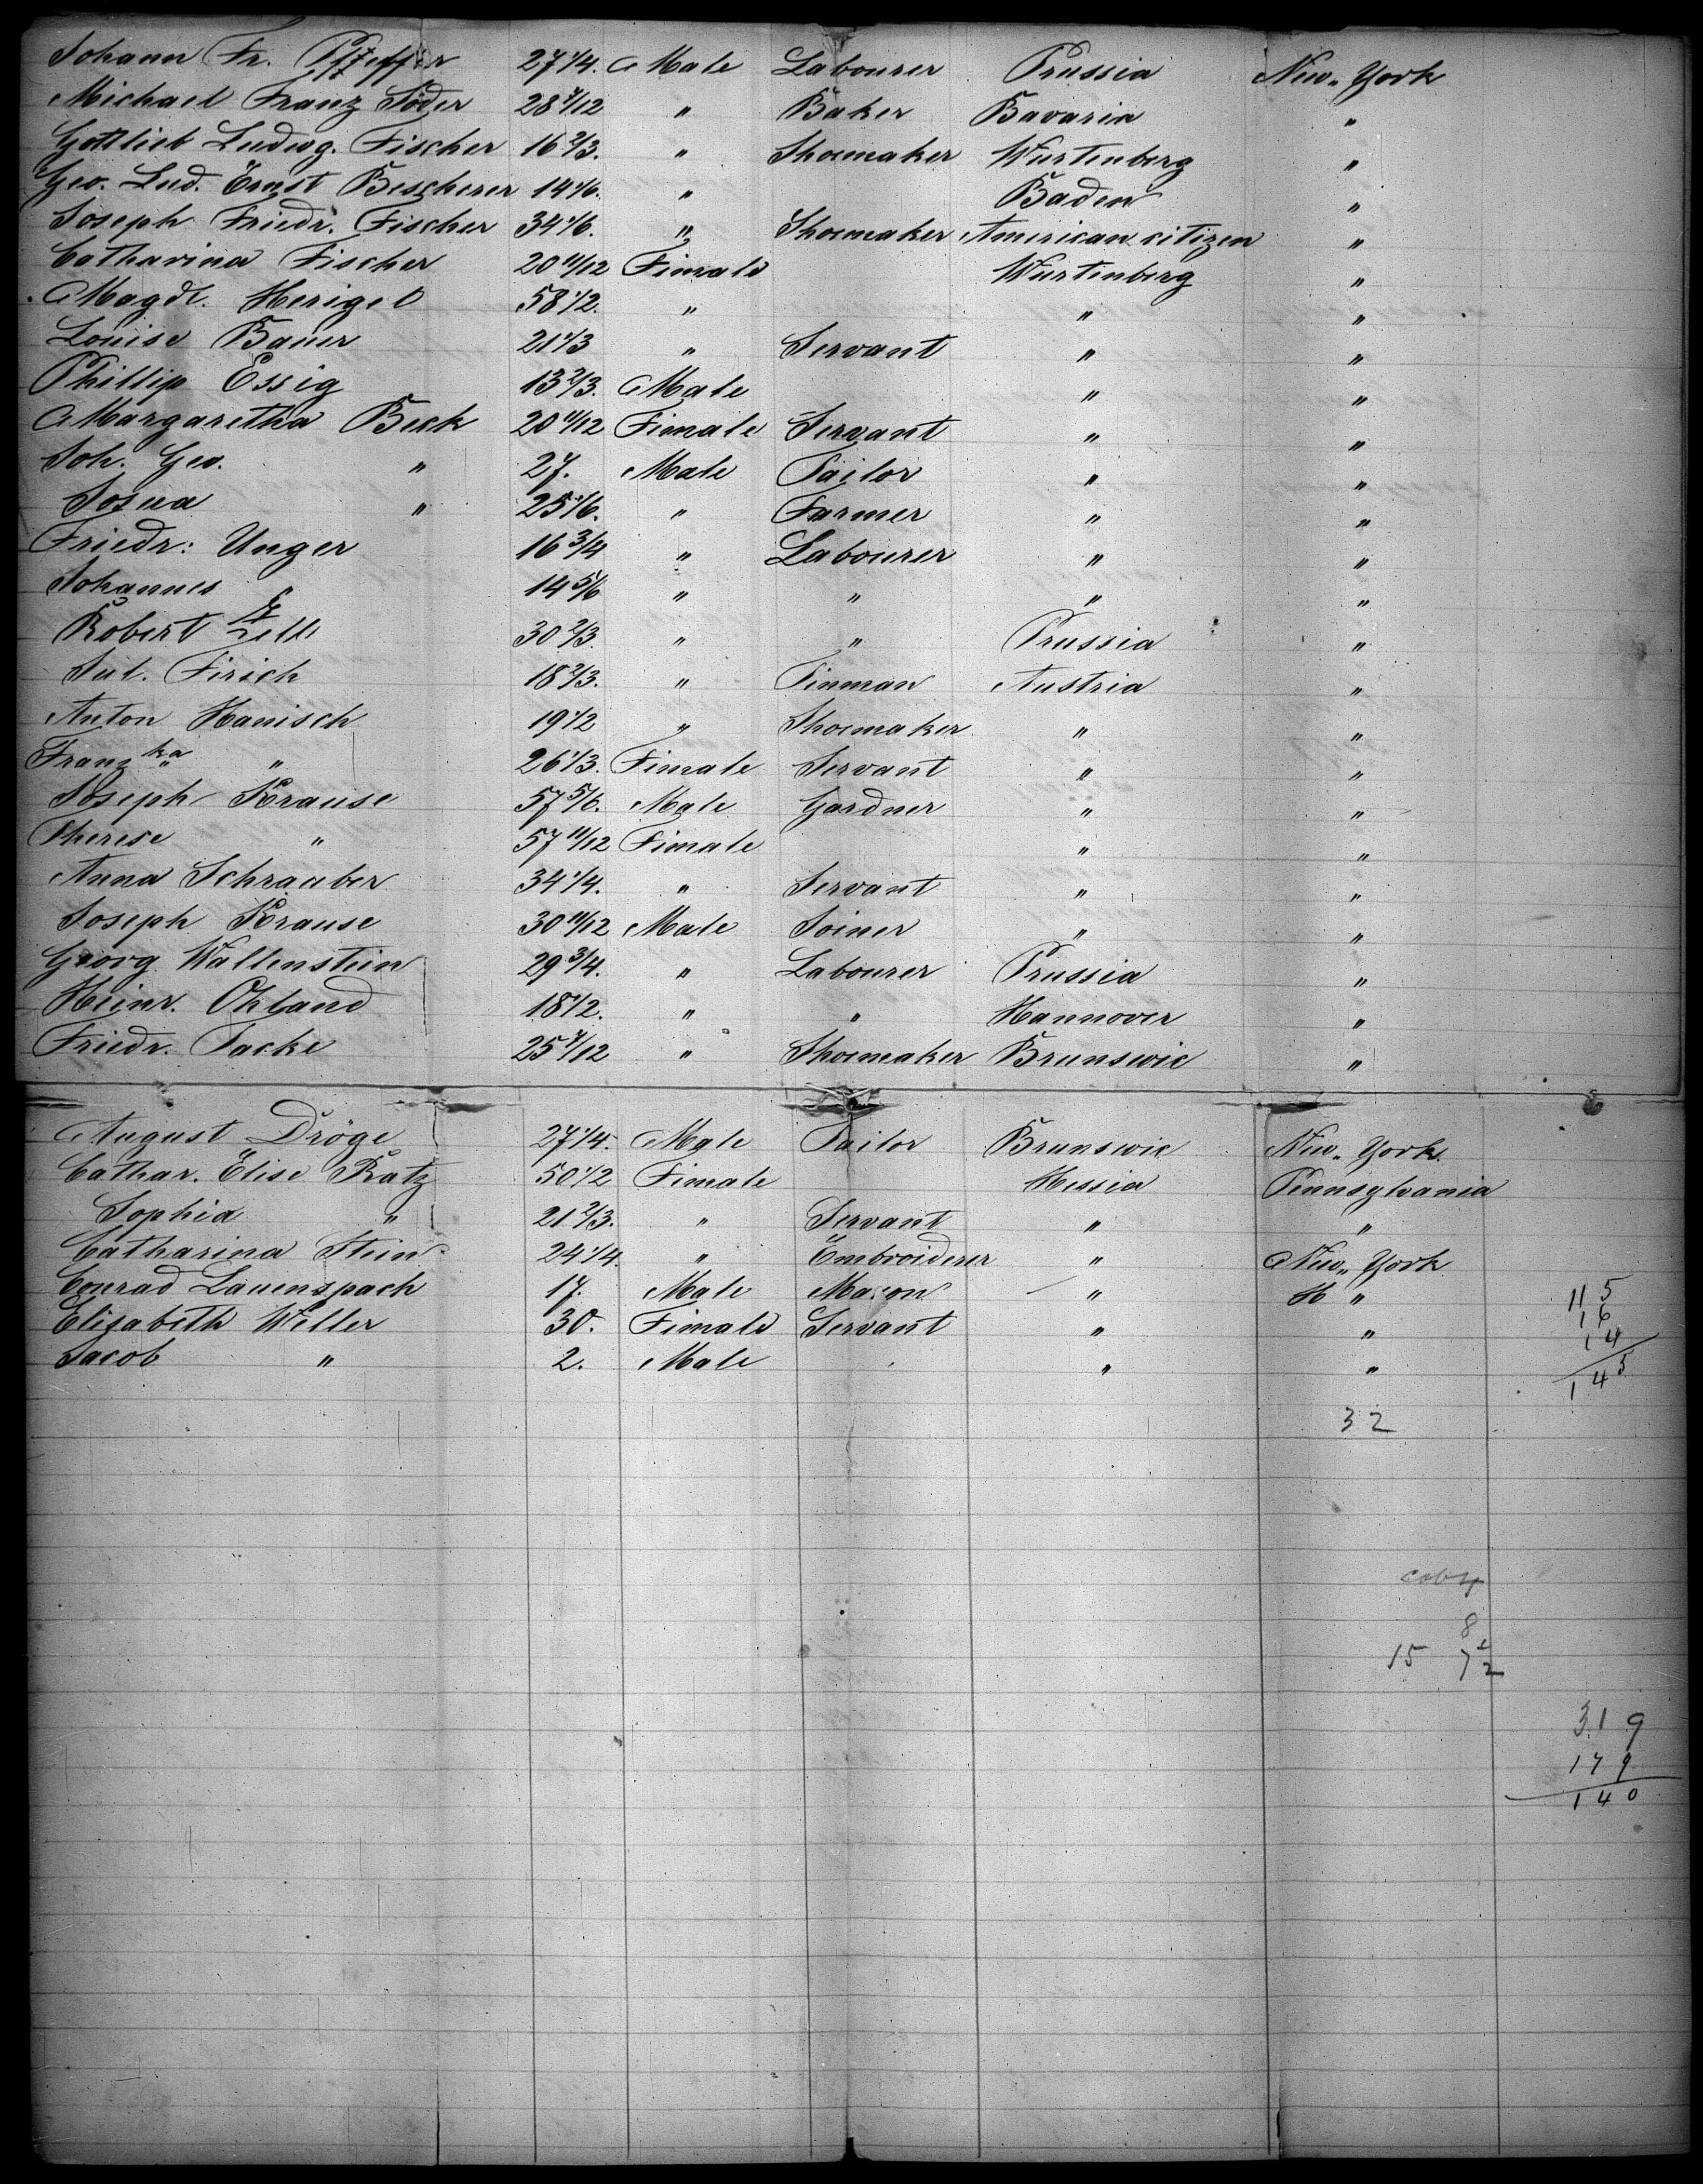 Johann Fr. Pfeiffer 27 1/4. Male Labourer Prussia New-York
Michael Franz Söder 28 7/12 " Baker Bavaria "
Gottlieb Ludwg. Fischer 16 2/3. " Shoemaker Wurtenberg "
Geo. Lud. Ernst Bescherer 14 1/6. " Baden "
Joseph Friedr. Fischer 34 1/6. " Shoemaker American citizen "
Catharina Fischer 20 11/12 Female Wurtenberg "
Magdl. Herigel 58 1/2. " " "
Louise Bauer 21 1/3 " Servant " "
Phillip Essig 13 2/3. Male " "
Margaretha Beck 20 11/12 Female Servant " "
Joh. Geo. " 27. Male Tailor " "
Josua " 25 1/6. " Farmer " "
Friedr: Unger 16 3/4 " Labourer " "
Johannes " 14 5/6 " " " "
Robert Zell 30 2/3. " " Prussia "
Jul. Firich 18 2/3. " Tinman Austria "
Anton Hanisch 19 1/2 " Shoemaker " "
Franzka " 26 1/3. Female Servant " "
Joseph Krause 57 5/6. Male Gardner " "
Therese " 57 11/12 Female " "
Anna Schrauber 34 1/4. " Servant " "
Joseph Krause 30 11/12 Male Joiner " "
Georg Wallenstein 29 3/4. " Labourer Prussia "
Heinr. Ohland 18 1/2. " " Hannover "
Friedr. Tacke 25 7/12 " Shoemaker Brunswic "
August Dröge 27 1/4. Male Tailor Brunswic New-York.
Cathar. Elise Katz 50 1/2 Female Hessia Pennsylvania
Sophia " 21 2/3. " Servant " "
Catharina Stein 24 1/4. " Embroiderer " New-York
Conrad Lauenspach 17. Male Mason " "
Elisabeth Weller 30. Female Servant " "
Jacob " 2. Male " "
115
16
14
145
32
8
15 7 1/2
319
179
140